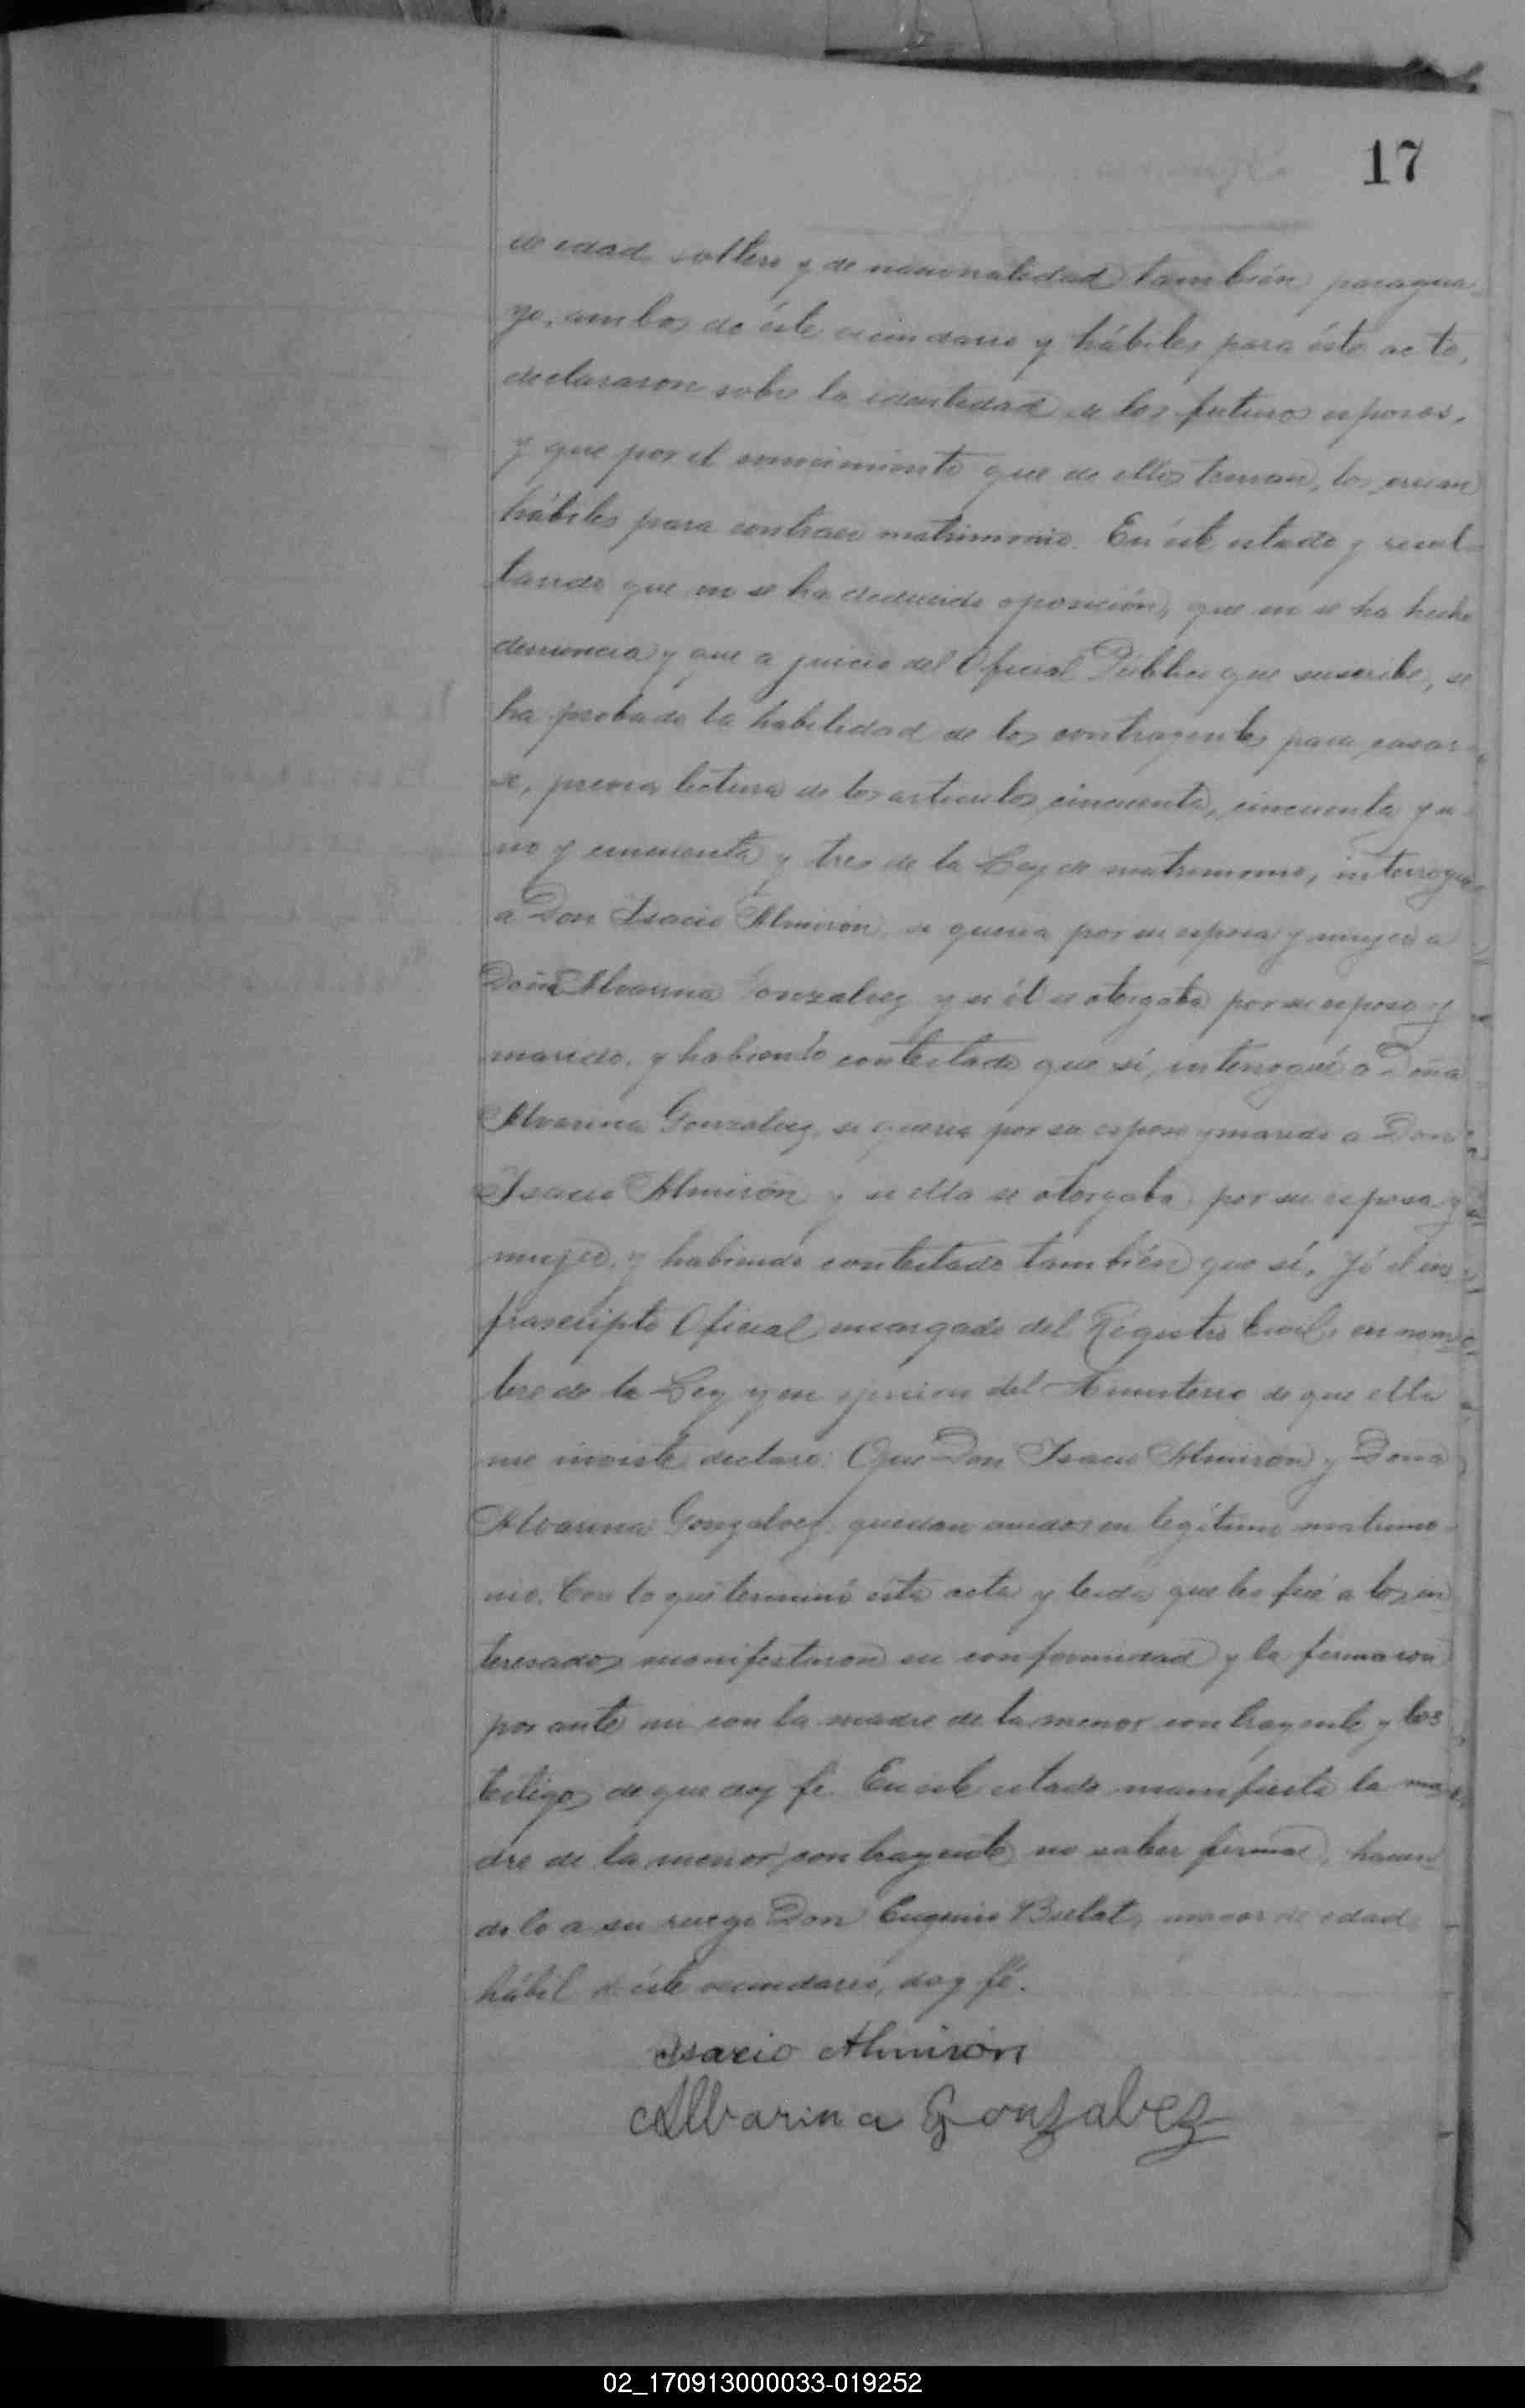 17
de edad, soltero y de nacionalidad también paragua-
yo, ambos de éste vecindario y hábiles para éste acto,
declararon sobre la identidad de los futuros esposos,
y que por el conocimiento que de ellos tenian, los creian
hábiles para contraer matrimonio. En éste estado y resul-
tando que no se ha deducido oposición, que no se ha hecho
denuncia y que a juicio del Oficial Público que suscribe, se
ha probado la habilidad de los contrayentes para casar-
se, previa lectura de los artículos cincuenta, cincuenta y u-
no y cincuenta y tres de la Ley de matrimonio, interrogué
a Don Isacio Almirón, si queria por su esposa y mujer a
Doña Alvarina Gonzalvez y si él se otorgaba por su esposo y
marido, y habiendo contestado que sí, interrogué a Doña
Alvarina Gonzalvez, si queria por su esposo y marido a Don
Isacio Almirón y si ella se otorgaba por su esposa y
mujer, y habiendo contestado también que sí, Yó el in-
frascripto Oficial encargado del Registro Civil, en nom-
bre de la Ley y en ejercicio del Ministerio de que ella
me inviste declaro: Que Don Isacio Almirón y Doña
Alvarina Gonzalvez, quedan unidos en legítimo matrimo-
nio. Con lo que terminó ésta acta y leida que les fué a los in-
teresados manifestaron su conformidad y la firmaron
por ante mi con la madre de la menor contrayente y los
testigos de que doy fé. En éste estado manifiesta la ma-
dre de la menor contrayente no saber firmar, hacien-
dolo a su ruego Don Eugenio Bielat, mayor de edad
hábil de éste vecindario, doy fé.
Isacio Almirón
Albarina Gonzalvez
02_170913000033-019252